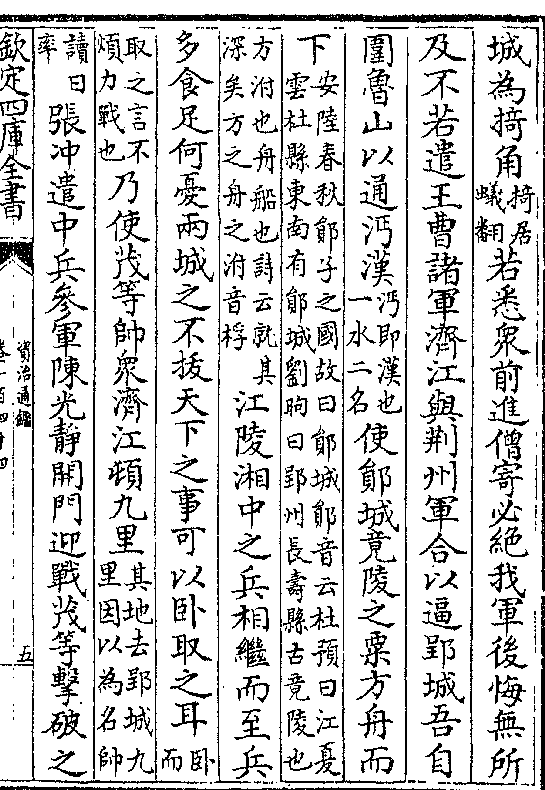 城為掎角掎居蟻翻若悉衆前進僧寄必絕我軍後悔無所
及不若遣王曹諸軍濟江與荆州軍合以逼郢城吾自
圍魯山以通沔漢沔即漢也一水二名使鄖城竟陵之粟方舟而
下安陸春秋鄖子之國故曰鄖城鄖音云杜預曰江夏雲杜縣東南有鄖城劉昫曰郢州長壽縣古竟陵也
方泭也舟船也詩云就其深矣方之舟之泭音桴江陵湘中之兵相繼而至兵
多食足何憂兩城之不拔天下之事可以卧取之耳卧而
取之言不煩力戰也乃使茂等帥衆濟江頓九里其地去郢城九里因以為名帥
讀曰率張冲遣中兵參軍陳光靜開門迎戰茂等擊破之
欽定四庫全書
資治通鑑
卷一百四十四
五